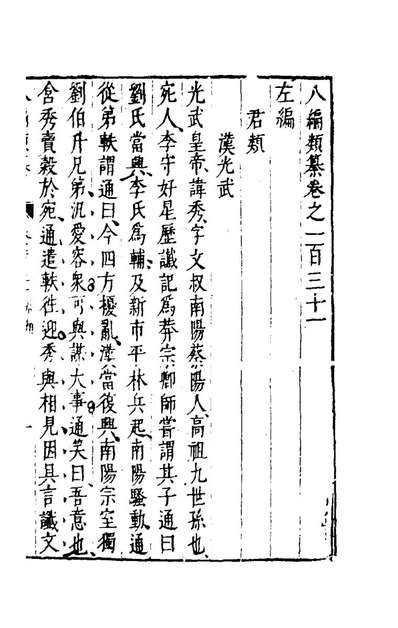 八編類纂卷之一百三十一
左編
君類
漢光武
光武皇帝諱秀字文叔南陽蔡陽人高祖九世孫也
宛人李守好星歷讖記為莽宗卿師嘗謂其子通曰
劉氏當興李氏為輔及新市平林兵起南陽騷動通
從弟軼謂通曰今四方擾亂漢當復興南陽宗室獨
劉伯升兄弟汎愛容衆可與謀大事通笑曰吾意也
會秀賣穀於宛通遣軼往迎秀與相見因具言讖文